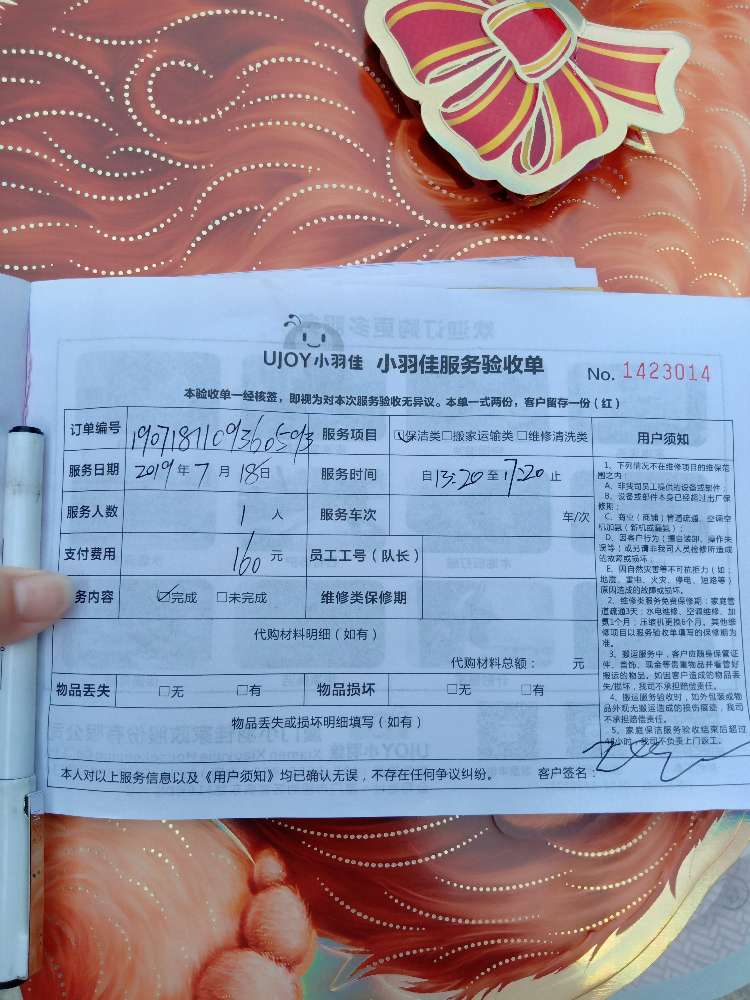 UJOY小羽佳 小羽佳服务验收单 No. 1423014
本验收单一经核签，即视为对本次服务验收无异议。本单一式两份，客户留存一份（红）
订单编号 服务项目 ☑保洁类□搬家运输类□维修清洗类 用户须知
服务日期 2019年7月18日 服务时间 自13:20至17:20止
服务人数 1人 服务车次 车/次
支付费用 160元 员工工号（队长）
务内容 ☑完成 □未完成 维修类保修期
代购材料明细（如有）
代购材料总额： 元
物品丢失 □无 □有 物品损坏 □无 □有
物品丢失或损坏明细填写（如有）
本人对以上服务信息以及《用户须知》均已确认无误，不存在任何争议纠纷。 客户签名：
1、下列情况不在维修项目的维保范
围之内：
A、非我司员工提供的设备或部件；
B、设备或部件本身已经超过出厂保
修期；
C、商业（商铺）管道疏通、空调空
机加氨（新机或漏氨）；
D、因客户行为（擅自装卸、操作失
误等）或另请非我司人员检修所造成
的故障或损坏；
E、因自然灾害等不可抗拒力（如：
地震、雷电、火灾、停电、短路等）
原因造成的故障或损坏。
2、维修类服务免费保修期：家庭管
道疏通3天；水电维修、空调维修、加
氨1个月；压缩机更换6个月。其他维
修项目以服务验收单填写的保修期为
准。
3、搬运服务中，客户应随身保管证
件、首饰、现金等贵重物品并看管好
搬运的物品。如因客户造成的物品丢
失/损坏，我司不承担赔偿责任。
4、搬运服务时，如外包装或物
品外观无搬运造成的损伤痕迹，我司
不承担赔偿责任。
5、家庭保洁服务验收结束后超过
48小时，我司不负责上门返工。